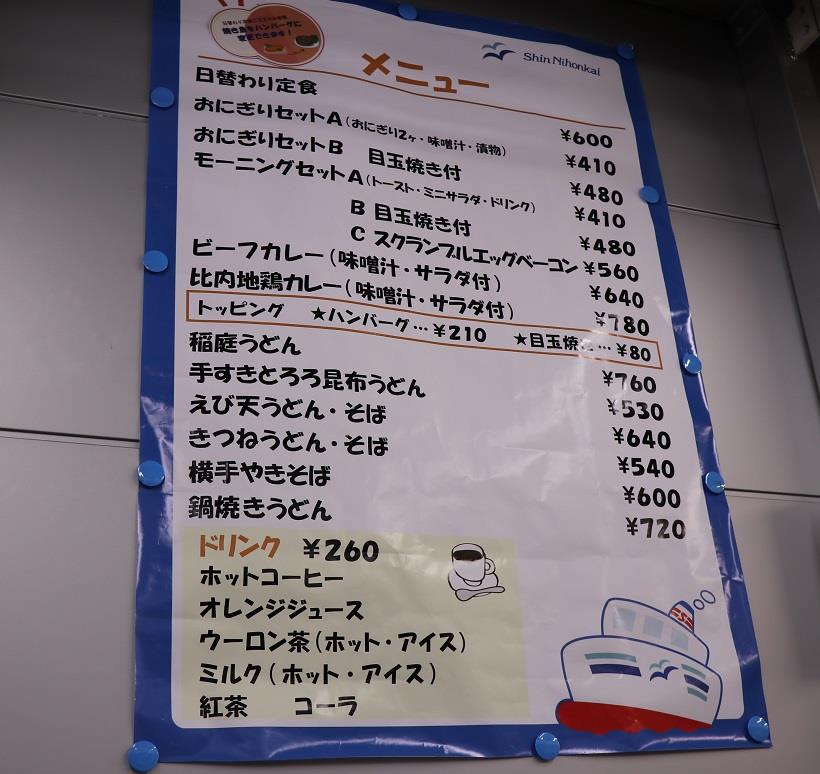 日替わり定食ご注文のお客様
焼き魚をハンバーグに
変更できます！
Shin Nihonkai
メニュー
日替わり定食 ¥600
おにぎりセットA(おにぎり2ヶ・味噌汁・漬物) ¥410
おにぎりセットB 目玉焼き付 ¥480
モーニングセットA(トースト・ミニサラダ・ドリンク) ¥410
B 目玉焼き付 ¥480
C スクランブルエッグベーコン ¥560
ビーフカレー(味噌汁・サラダ付) ¥640
比内地鶏カレー(味噌汁・サラダ付) ¥780
トッピング ★ハンバーグ…¥210 ★目玉焼き…¥80
稲庭うどん ¥760
手すきとろろ昆布うどん ¥530
えび天うどん・そば ¥640
きつねうどん・そば ¥540
横手やきそば ¥600
鍋焼きうどん ¥720
ドリンク ¥260
ホットコーヒー
オレンジジュース
ウーロン茶(ホット・アイス)
ミルク(ホット・アイス)
紅茶 コーラ